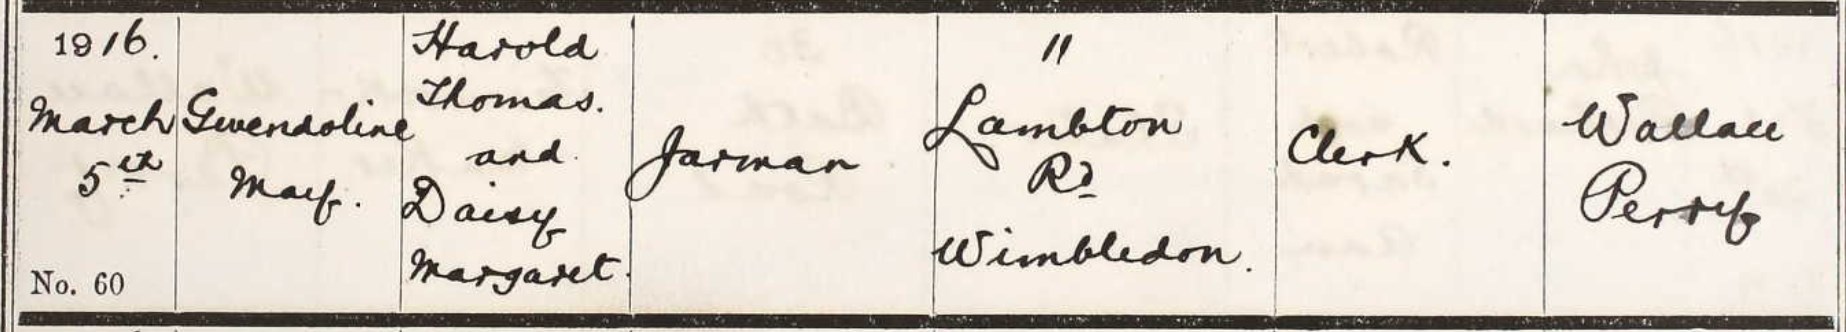 1916.
March
5th
No. 60
Gwendoline
May.
Harold
Thomas.
and
Daisy
Margaret.
Jarman
"
Lambton
Rd
Wimbledon.
Clerk.
Wallace
Perry